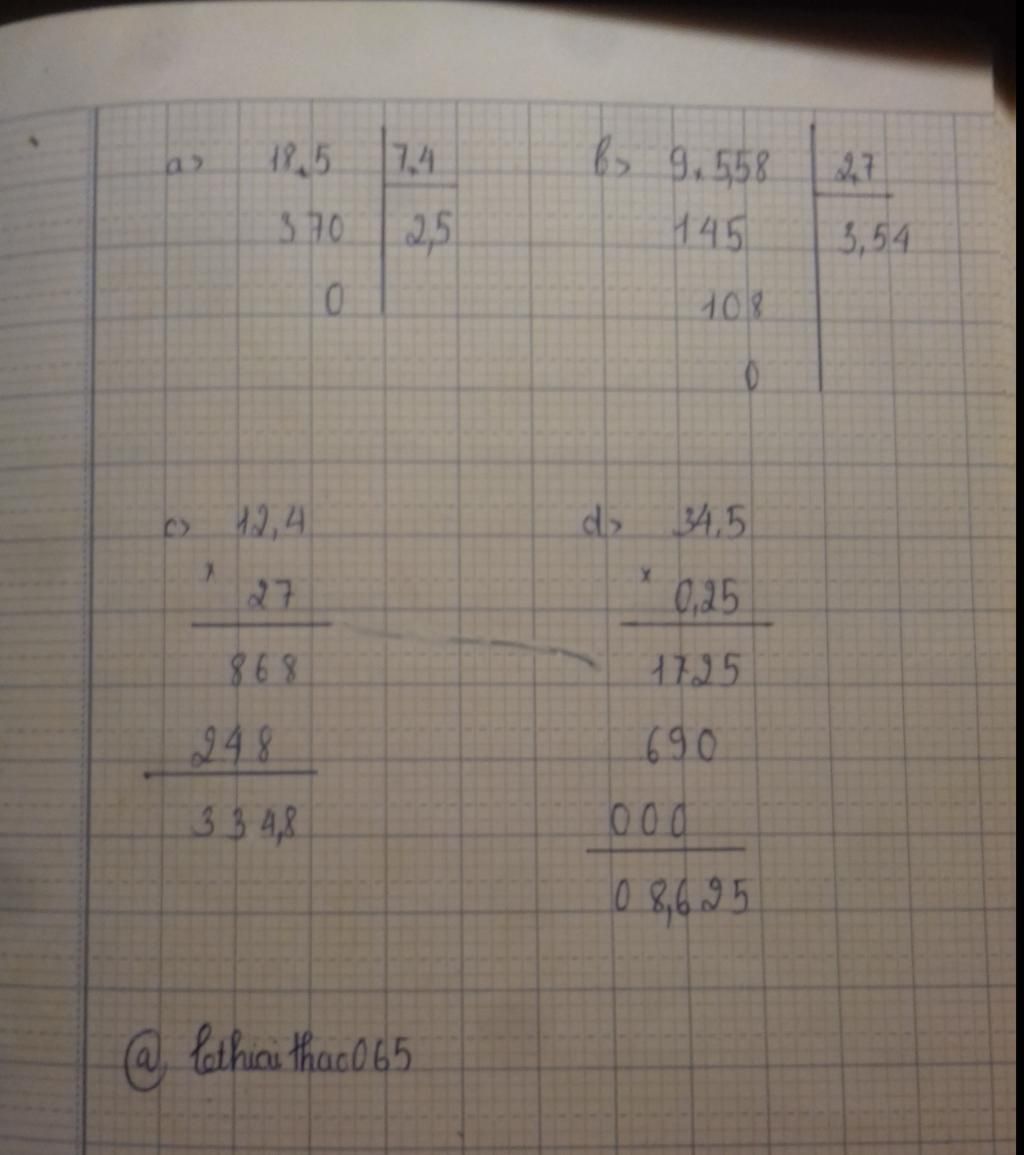 a> 18,5 7,4
370 2,5
0
b> 9,5,58 2,7
145 3,54
108
0
c> 12,4
x 27
868
248
334,8
d> 34,5
x 0,25
1725
690
000
08,625
@ lethiaithao065